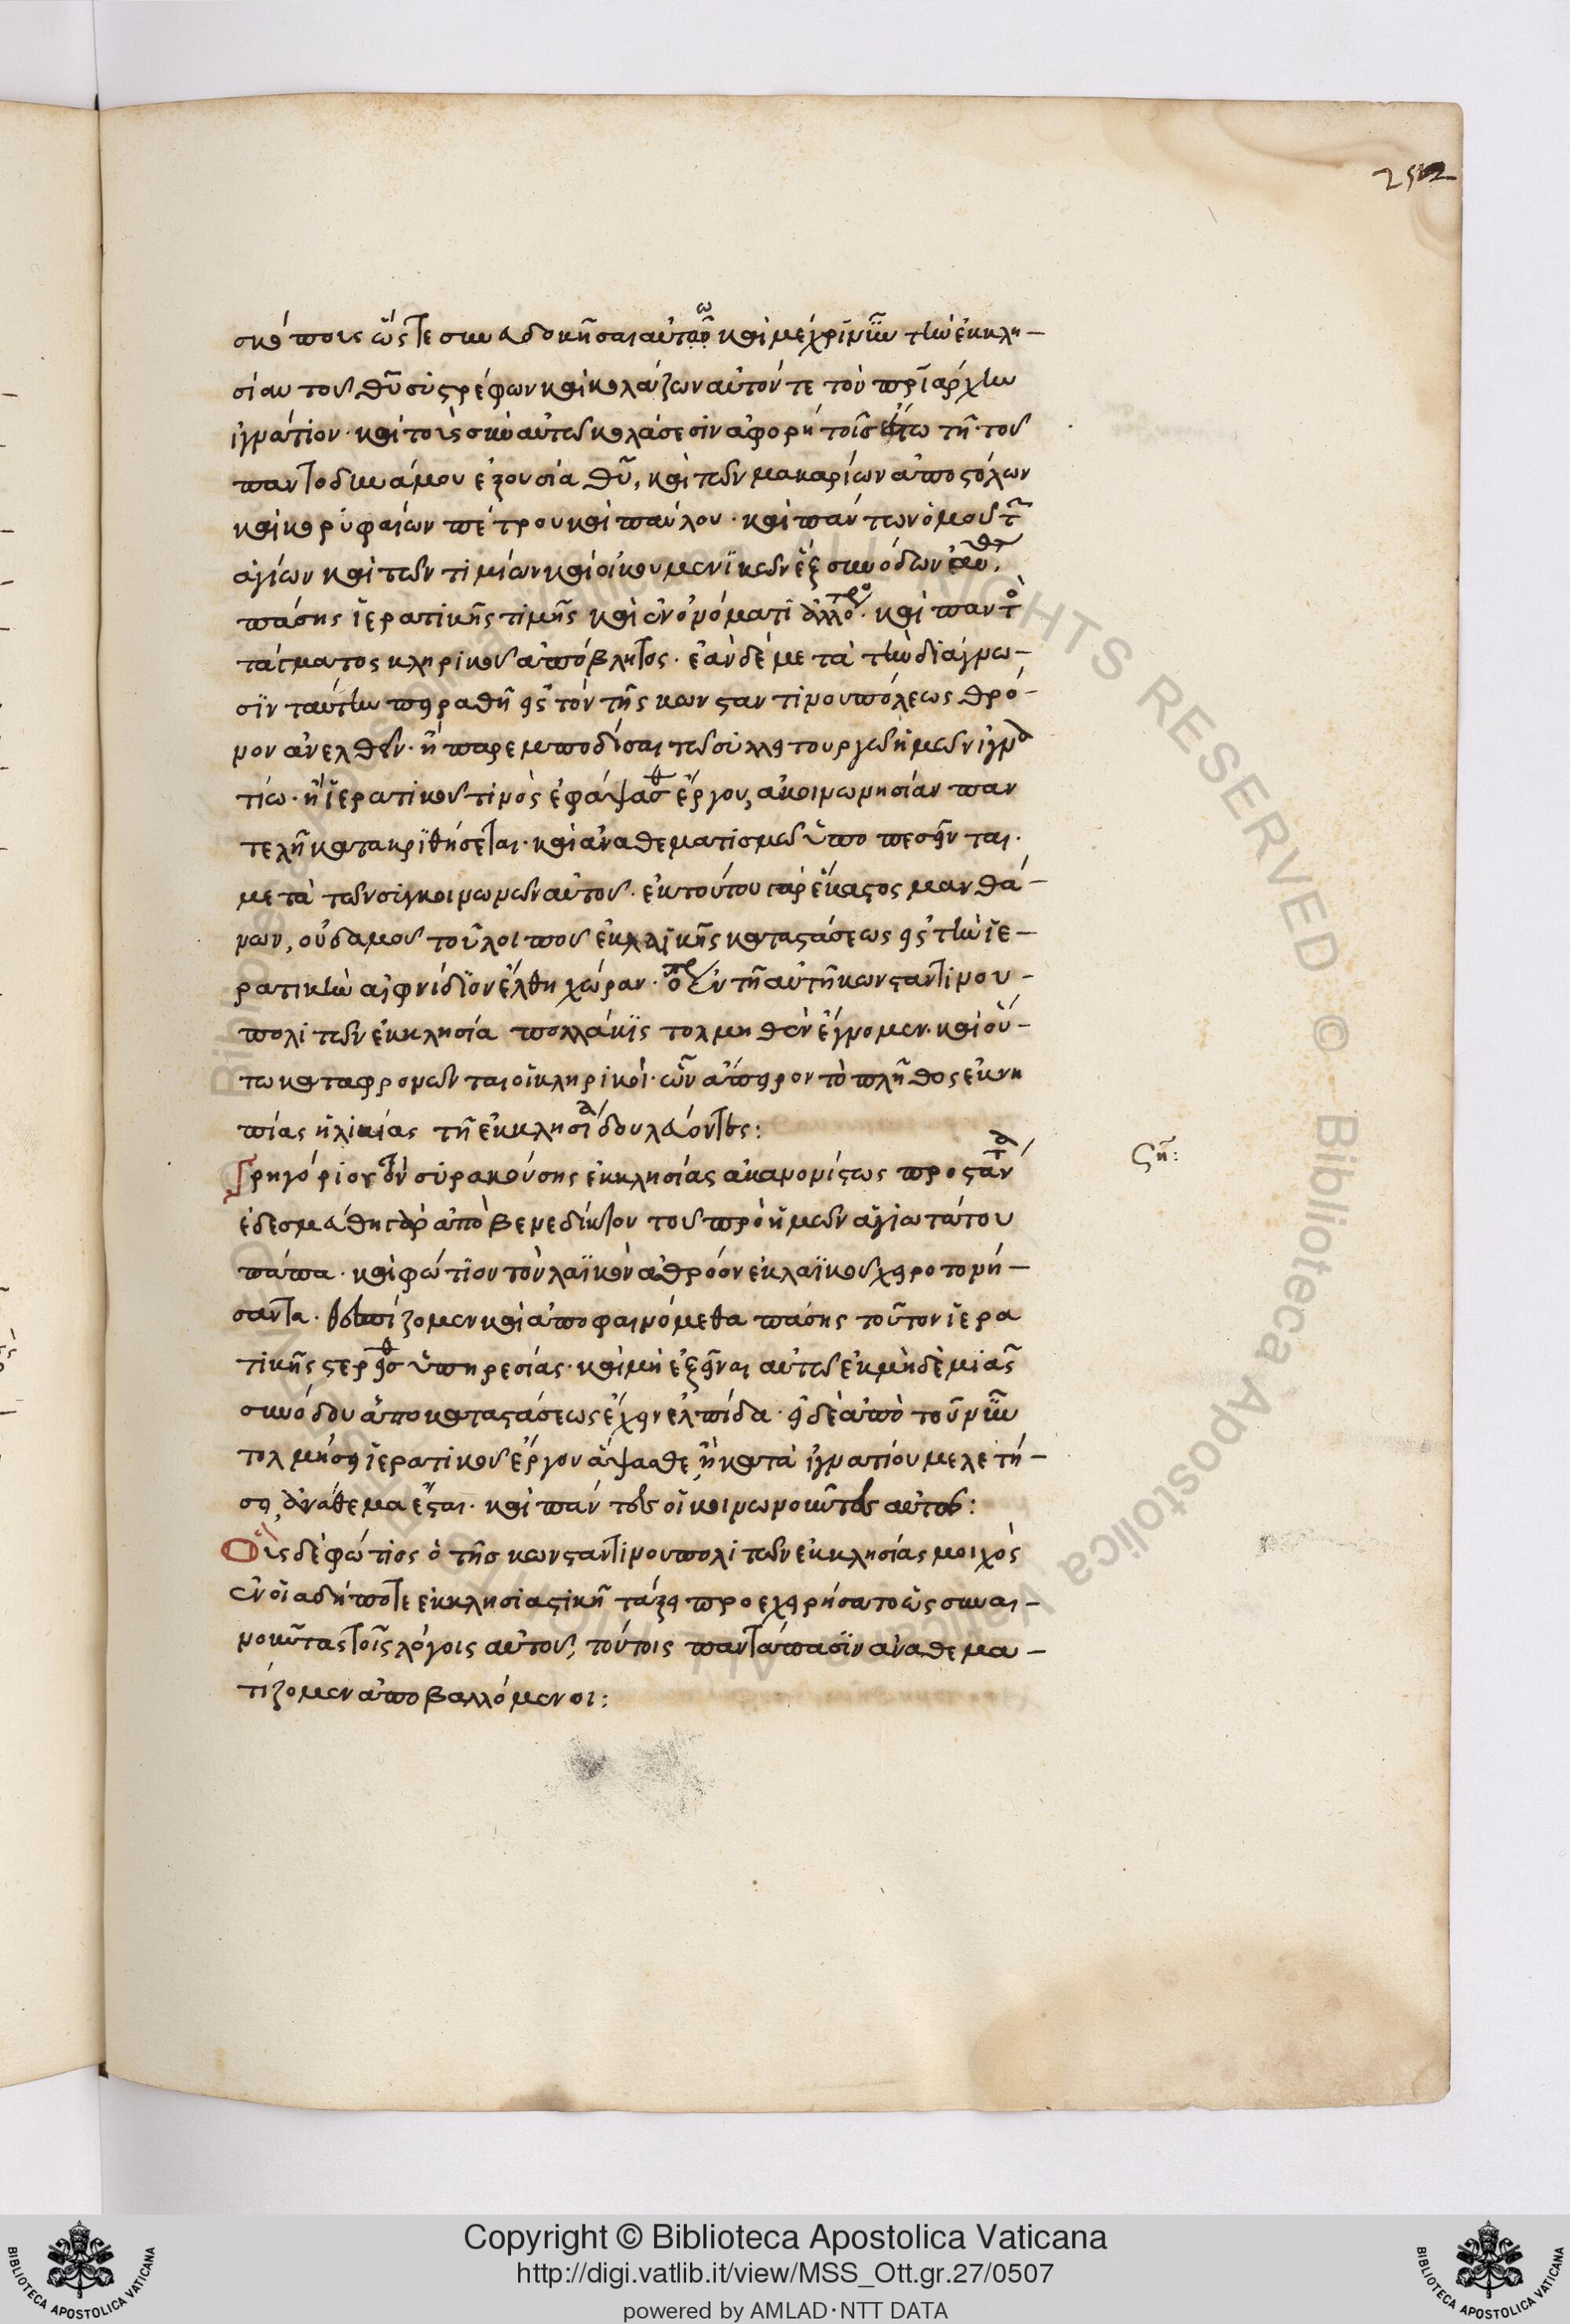 252
σκόποις ὥστε συνευδοκῆσαι αὐτῶ καὶ μέχρι νῦν τὴν ἐκκλη-
σίαν τοῦ θῦ συστρέφων καὶ κολάζων αὐτόν τε τὸν πρϊάρχην
ἰγνάτιον· καὶ τοὺς σὺν αὐτῶ κολάσεσιν ἀφορήτοις ἔστω τῆ τοῦ
παντοδυνάμου ἐξουσία θῦ, καὶ τῶν μακαρίων ἀποστόλων
καὶ κορυφαίων πέτρου καὶ παύλου· καὶ πάντων ὁμοῦ τῶν
ἁγίων καὶ τῶν τιμίων καὶ οἰκουμενικῶν ἓξ συνόδων
πάσης ἱερατικῆς τιμῆς καὶ ἐν ὀνόματι ἀλλότριος· καὶ παντὸς
τάγματος κληρικοῦ ἀπόβλητος· ἐὰν δὲ μετὰ τὴν διάγνω-
σιν ταύτην πειραθῆ εἰς τὸν τῆς κωνσταντινουπόλεως θρό-
νον ἀνελθεῖν· ἢ παρεμποδίσαι τῶ συλλειτουργῶ ἡμῶν ἰγνα
τίω· ἢ ἱερατικοῦ τινὸς ἐφάψασθ ἔργου, ἀκοινωνησίαν παν
τελῆ κατακριθήσεται· καὶ ἀναθεματισμῶ ὑποπεσεῖνται·
μετὰ τῶν συγκοινωνῶν αὐτοῦ· ἐκ τούτου γὰρ ἕκαστος μανθά-
νων, οὐδαμοῦ τοῦ λοιποῦ ἐκ λαϊκῆς καταστάσεως εἰς τὴν ἱε-
ρατικὴν αἰφνίδιον ἔλθη χώραν· ὅπερ ἐν τῆ αὐτῆ κωνσταντινου-
πολιτῶν ἐκκλησία πολλάκις τολμηθὲν ἔγνομεν· καὶ οὕ-
τω καταφρονῶνται οἱ κληρικοί· ὧν ἄπειρον τὸ πλῆθος ἐκ νη
πίας ἡλικίας τῆ ἐκκλησία δουλεύοντες:
Γρηγόριον τὸν συρακούσης ἐκκλησίας ἀκανονίστως προστάτην
ἐδεσμεύθη γὰρ ἀπὸ βενεδίκτου τοῦ πρὸ ἡμῶν ἁγιωτάτου
πάπα· καὶ φώτιον τὸν λαϊκὸν ἀθρόον ἐκ λαϊκοῦ χειροτονή-
σαντα· θεσπίζομεν καὶ ἀποφαινόμεθα πάσης τοῦτον ἱερα
τικῆς στερεῖσθ ὑπηρεσίας· καὶ μὴ ἐξεῖναι αὐτῶ ἐκ μηδὲ μιᾶς
συνόδου ἀποκαταστάσεως ἔχειν ἐλπίδα· εἰ δὲ ἀπὸ τοῦ νῦν
τολμήσει ἱερατικοῦ ἔργου ἅψασθε ἢ κατὰ ἰγνατίου μελετή-
σει, ἀνάθεμα ἔσται· καὶ πάντες οἱ κοινωνοῦντες αὐτοῦ:
Οἷς δὲ φώτιος ὁ τῆς κωνσταντινουπολιτῶν ἐκκλησίας μοιχὸς
ἐν οἱαδήποτε ἐκκλησιαστικῆ τάξει προεχειρήσατο ὡς συναι-
νοῦντας τοῖς λόγοις αὐτοῦ, τούτοις παντάπασιν ἀναθεμα-
τίζομεν ἀποβαλλόμενοι:
ση:
Copyright © Biblioteca Apostolica Vaticana
http://digi.vatlib.it/view/MSS_Ott.gr.27/0507
powered by AMLAD·NTT DATA
BIBLIOTECA APOSTOLICA VATICANA
BIBLIOTECA APOSTOLICA VATICANA